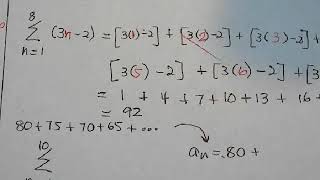 8
∑ (3n-2) = [3(1)-2] + [3(2)-2] + [3(3)-2] +
n=1
[3(5)-2] + [3(6)-2] +
= 1 + 4 + 7 + 10 + 13 + 16 +
= 92
80 + 75 + 70 + 65 + ...
10
∑
aₙ = 80 +